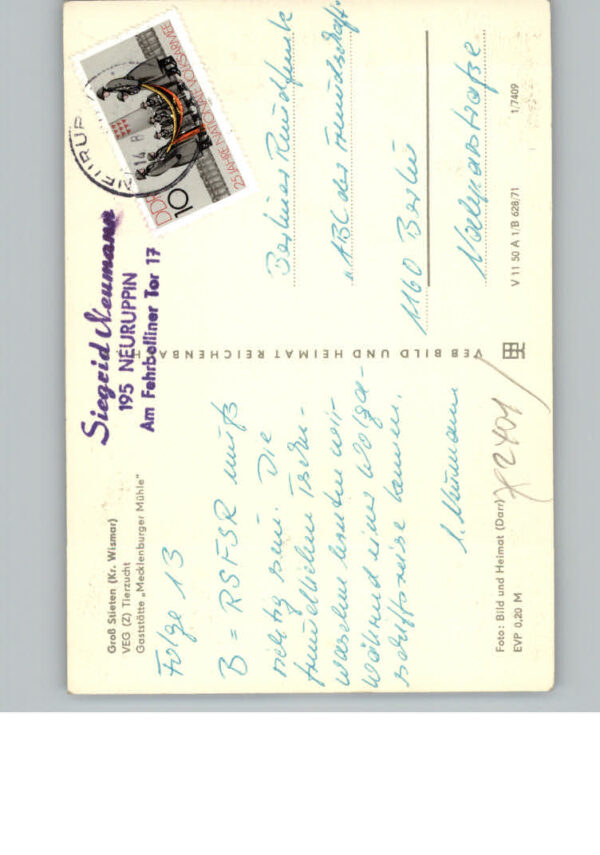 Groß Stieten (Kr. Wismar)
VEG (Z) Tierzucht
Gaststätte „Mecklenburger Mühle"
Siegrid Neumann
195 NEURUPPIN
Am Fehrbelliner Tor 17
Folge 13
B = RSFSR muß
richtig sein. Die
freundlichen Tschu-
waschen lernten wir
während einer Wolga-
schiffsreise kennen.
S. Neumann
Foto: Bild und Heimat (Darr)
EVP 0,20 M
VEB BILD UND HEIMAT REICHENBACH
DDR
10
25 JAHRE NATIONALE VOLKSARMEE
NEURUP
Berliner Rundfunk
„ABC der Freundschaft"
1160 Berlin
Nalepastraße
V 11 50 A 1/B 628/71
1/7409